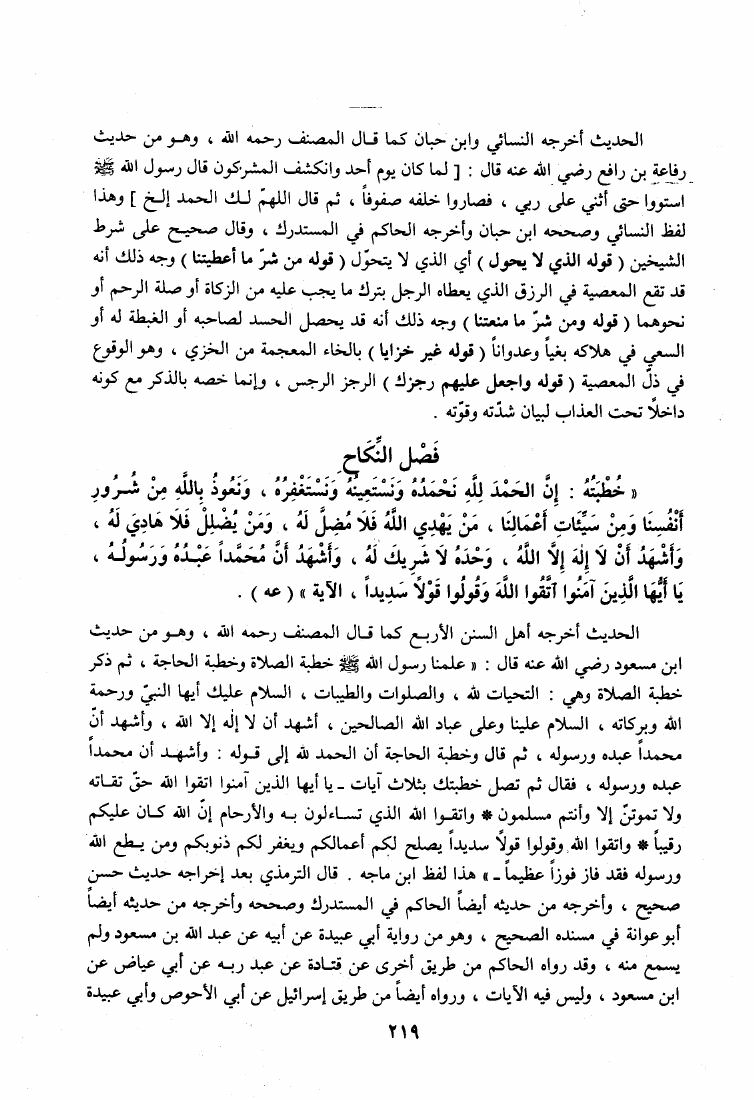 الحديث أخرجه النسائي وابن حبان كما قال المصنف رحمه الله ، وهو من حديث
رفاعة بن رافع رضي الله عنه قال : [ لما كان يوم أحد وانكشف المشركون قال رسول الله ﷺ
استووا حتى أثني على ربي ، فصاروا خلفه صفوفاً ، ثم قال اللهمّ لك الحمد إلخ ] وهذا
لفظ النسائي وصححه ابن حبان وأخرجه الحاكم في المستدرك ، وقال صحيح على شرط
الشيخين ( قوله الذي لا يحول ) أي الذي لا يتحوّل ( قوله من شرّ ما أعطيتنا ) وجه ذلك أنه
قد تقع المعصية في الرزق الذي يعطاه الرجل بترك ما يجب عليه من الزكاة أو صلة الرحم أو
نحوهما ( قوله ومن شرّ ما منعتنا ) وجه ذلك أنه قد يحصل الحسد لصاحبه أو الغبطة له أو
السعي في هلاكه بغياً وعدواناً ( قوله غير خزايا ) بالخاء المعجمة من الخزي ، وهو الوقوع
في ذلّ المعصية ( قوله واجعل عليهم رجزك ) الرجز الرجس ، وإنما خصه بالذكر مع كونه
داخلاً تحت العذاب لبيان شدّته وقوّته .
فَصْل النِّكَاحِ
« خُطْبَتُهُ : إِنَّ الحَمْدَ لِلَّهِ نَحْمَدُهُ وَنَسْتَعِينُهُ وَنَسْتَغْفِرُهُ ، وَنَعُوذُ بِاللَّهِ مِنْ شُرُورِ
أَنْفُسِنَا وَمِنْ سَيِّئَاتِ أَعْمَالِنَا ، مَنْ يَهْدِي اللَّهُ فَلَا مُضِلَّ لَهُ ، وَمَنْ يُضْلِلْ فَلَا هَادِيَ لَهُ ،
وَأَشْهَدُ أَنْ لَا إِلٰهَ إِلَّا اللَّهُ ، وَحْدَهُ لَا شَرِيكَ لَهُ ، وَأَشْهَدُ أَنَّ مُحَمَّداً عَبْدُهُ وَرَسُولُهُ ،
يَا أَيُّهَا الَّذِينَ آمَنُوا ٱتَّقُوا اللَّهَ وَقُولُوا قَوْلاً سَدِيداً ، الآية » ( عه ) .
الحديث أخرجه أهل السنن الأربع كما قال المصنف رحمه الله ، وهو من حديث
ابن مسعود رضي الله عنه قال : « علمنا رسول الله ﷺ خطبة الصلاة وخطبة الحاجة ، ثم ذكر
خطبة الصلاة وهي : التحيات لله ، والصلوات والطيبات ، السلام عليك أيها النبيّ ورحمة
الله وبركاته ، السلام علينا وعلى عباد الله الصالحين ، أشهد أن لا إله إلا الله ، وأشهد أنّ
محمداً عبده ورسوله ، ثم قال وخطبة الحاجة أن الحمد لله إلى قوله : وأشهد أن محمداً
عبده ورسوله ، فقال ثم تصل خطبتك بثلاث آيات ـ يا أيها الذين آمنوا اتقوا الله حقّ تقاته
ولا تموتنّ إلا وأنتم مسلمون * واتقوا الله الذي تساءلون به والأرحام إنّ الله كان عليكم
رقيباً * واتقوا الله وقولوا قولاً سديداً يصلح لكم أعمالكم ويغفر لكم ذنوبكم ومن يطع الله
ورسوله فقد فاز فوزاً عظيماً ـ » هذا لفظ ابن ماجه . قال الترمذي بعد إخراجه حديث حسن
صحيح ، وأخرجه من حديثه أيضاً الحاكم في المستدرك وصححه وأخرجه من حديثه أيضاً
أبو عوانة في مسنده الصحيح ، وهو من رواية أبي عبيدة عن أبيه عن عبد الله بن مسعود ولم
يسمع منه ، وقد رواه الحاكم من طريق أخرى عن قتادة عن عبد ربه عن أبي عياض عن
ابن مسعود ، وليس فيه الآيات ، ورواه أيضاً من طريق إسرائيل عن أبي الأحوص وأبي عبيدة
٢١٩